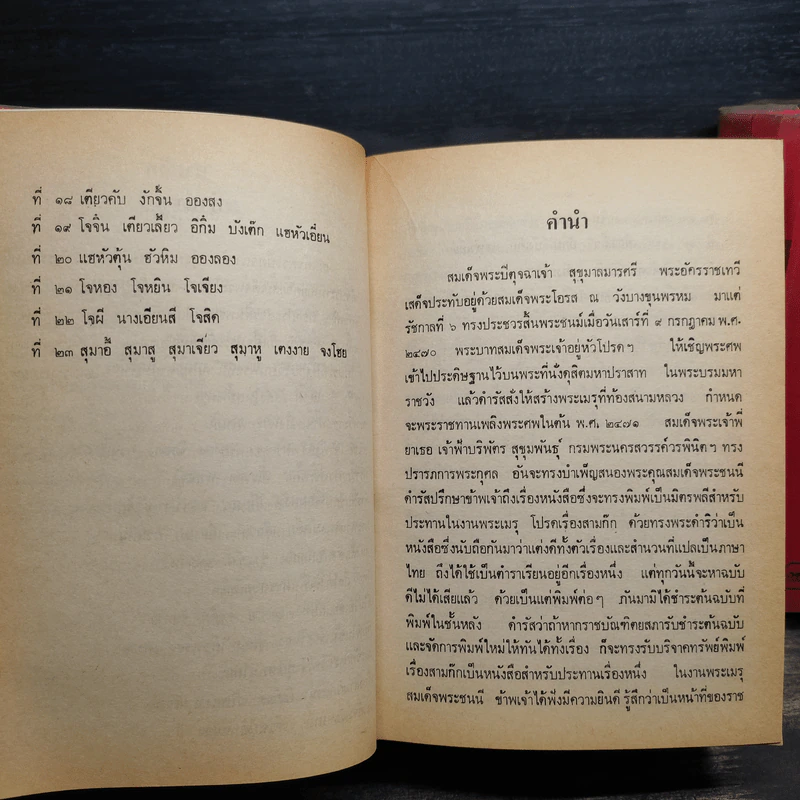 ที่ ๑๘ เตียวคับ งักจิ้น อองสง
ที่ ๑๙ โจจิ๋น เตียวเลี้ยว อิกิ๋ม บังเต๊ก แฮหัวเอี๋ยน
ที่ ๒๐ แฮหัวตุ้น ฮัวหิม อองลอง
ที่ ๒๑ โจหอง โจหยิน โจเจียง
ที่ ๒๒ โจผี นางเอียนสี โจสิด
ที่ ๒๓ สุมาอี้ สุมาสู สุมาเจียว สุมาหู เตงงาย จงโฮย
คำนำ
สมเด็จพระปิตุจฉาเจ้า สุขุมาลมารศรี พระอัครราชเทวี
เสด็จประทับอยู่ด้วยสมเด็จพระโอรส ณ วังบางขุนพรหม มาแต่
รัชกาลที่ ๖ ทรงประชวรสิ้นพระชนม์เมื่อวันเสาร์ที่ ๙ กรกฎาคม พ.ศ.
๒๔๗๐ พระบาทสมเด็จพระเจ้าอยู่หัวโปรดฯ ให้เชิญพระศพ
เข้าไปประดิษฐานไว้บนพระที่นั่งดุสิตมหาปราสาท ในพระบรมมหา
ราชวัง แล้วดำรัสสั่งให้สร้างพระเมรุที่ท้องสนามหลวง กำหนด
จะพระราชทานเพลิงพระศพในต้น พ.ศ. ๒๔๗๑ สมเด็จพระเจ้าพี่
ยาเธอ เจ้าฟ้าบริพัตร สุขุมพันธุ์ กรมพระนครสวรรค์วรพินิตฯ ทรง
ปรารภการพระกุศล อันจะทรงบำเพ็ญสนองพระคุณสมเด็จพระชนนี
ดำรัสปรึกษาข้าพเจ้าถึงเรื่องหนังสือซึ่งจะทรงพิมพ์เป็นมิตรพลีสำหรับ
ประทานในงานพระเมรุ โปรดเรื่องสามก๊ก ด้วยทรงพระดำริว่าเป็น
หนังสือซึ่งนับถือกันมาว่าแต่งดีทั้งตัวเรื่องและสำนวนที่แปลเป็นภาษา
ไทย ถึงได้ใช้เป็นตำราเรียนอยู่อีกเรื่องหนึ่ง แต่ทุกวันนี้จะหาฉบับ
ดีไม่ได้เสียแล้ว ด้วยเป็นแต่พิมพ์ต่อๆ กันมามิได้ชำระต้นฉบับที่
พิมพ์ในชั้นหลัง ดำรัสว่าถ้าหากราชบัณฑิตยสภารับชำระต้นฉบับ
และจัดการพิมพ์ใหม่ให้ทันได้ทั้งเรื่อง ก็จะทรงรับบริจาคทรัพย์พิมพ์
เรื่องสามก๊กเป็นหนังสือสำหรับประทานเรื่องหนึ่ง ในงานพระเมรุ
สมเด็จพระชนนี ข้าพเจ้าได้ฟังมีความยินดี รู้สึกว่าเป็นหน้าที่ของราช